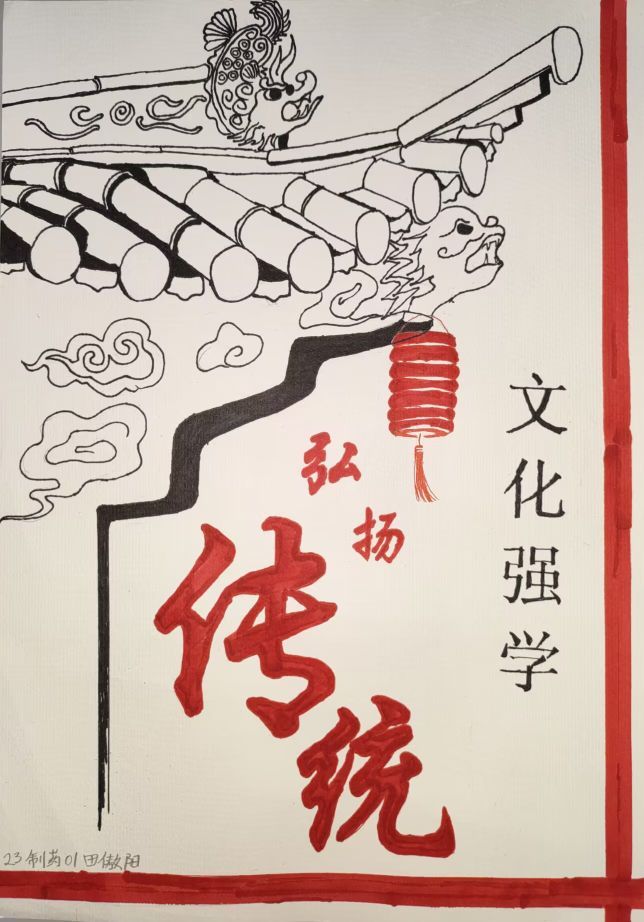 弘扬
传统
文化强学
23制药01田傲阳